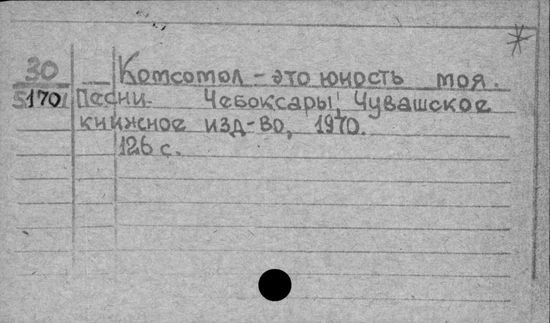 30
Комсомол - это юность моя.
5170
Песни. Чебоксары, Чувашское
книжное изд-во, 1970.
126 с.